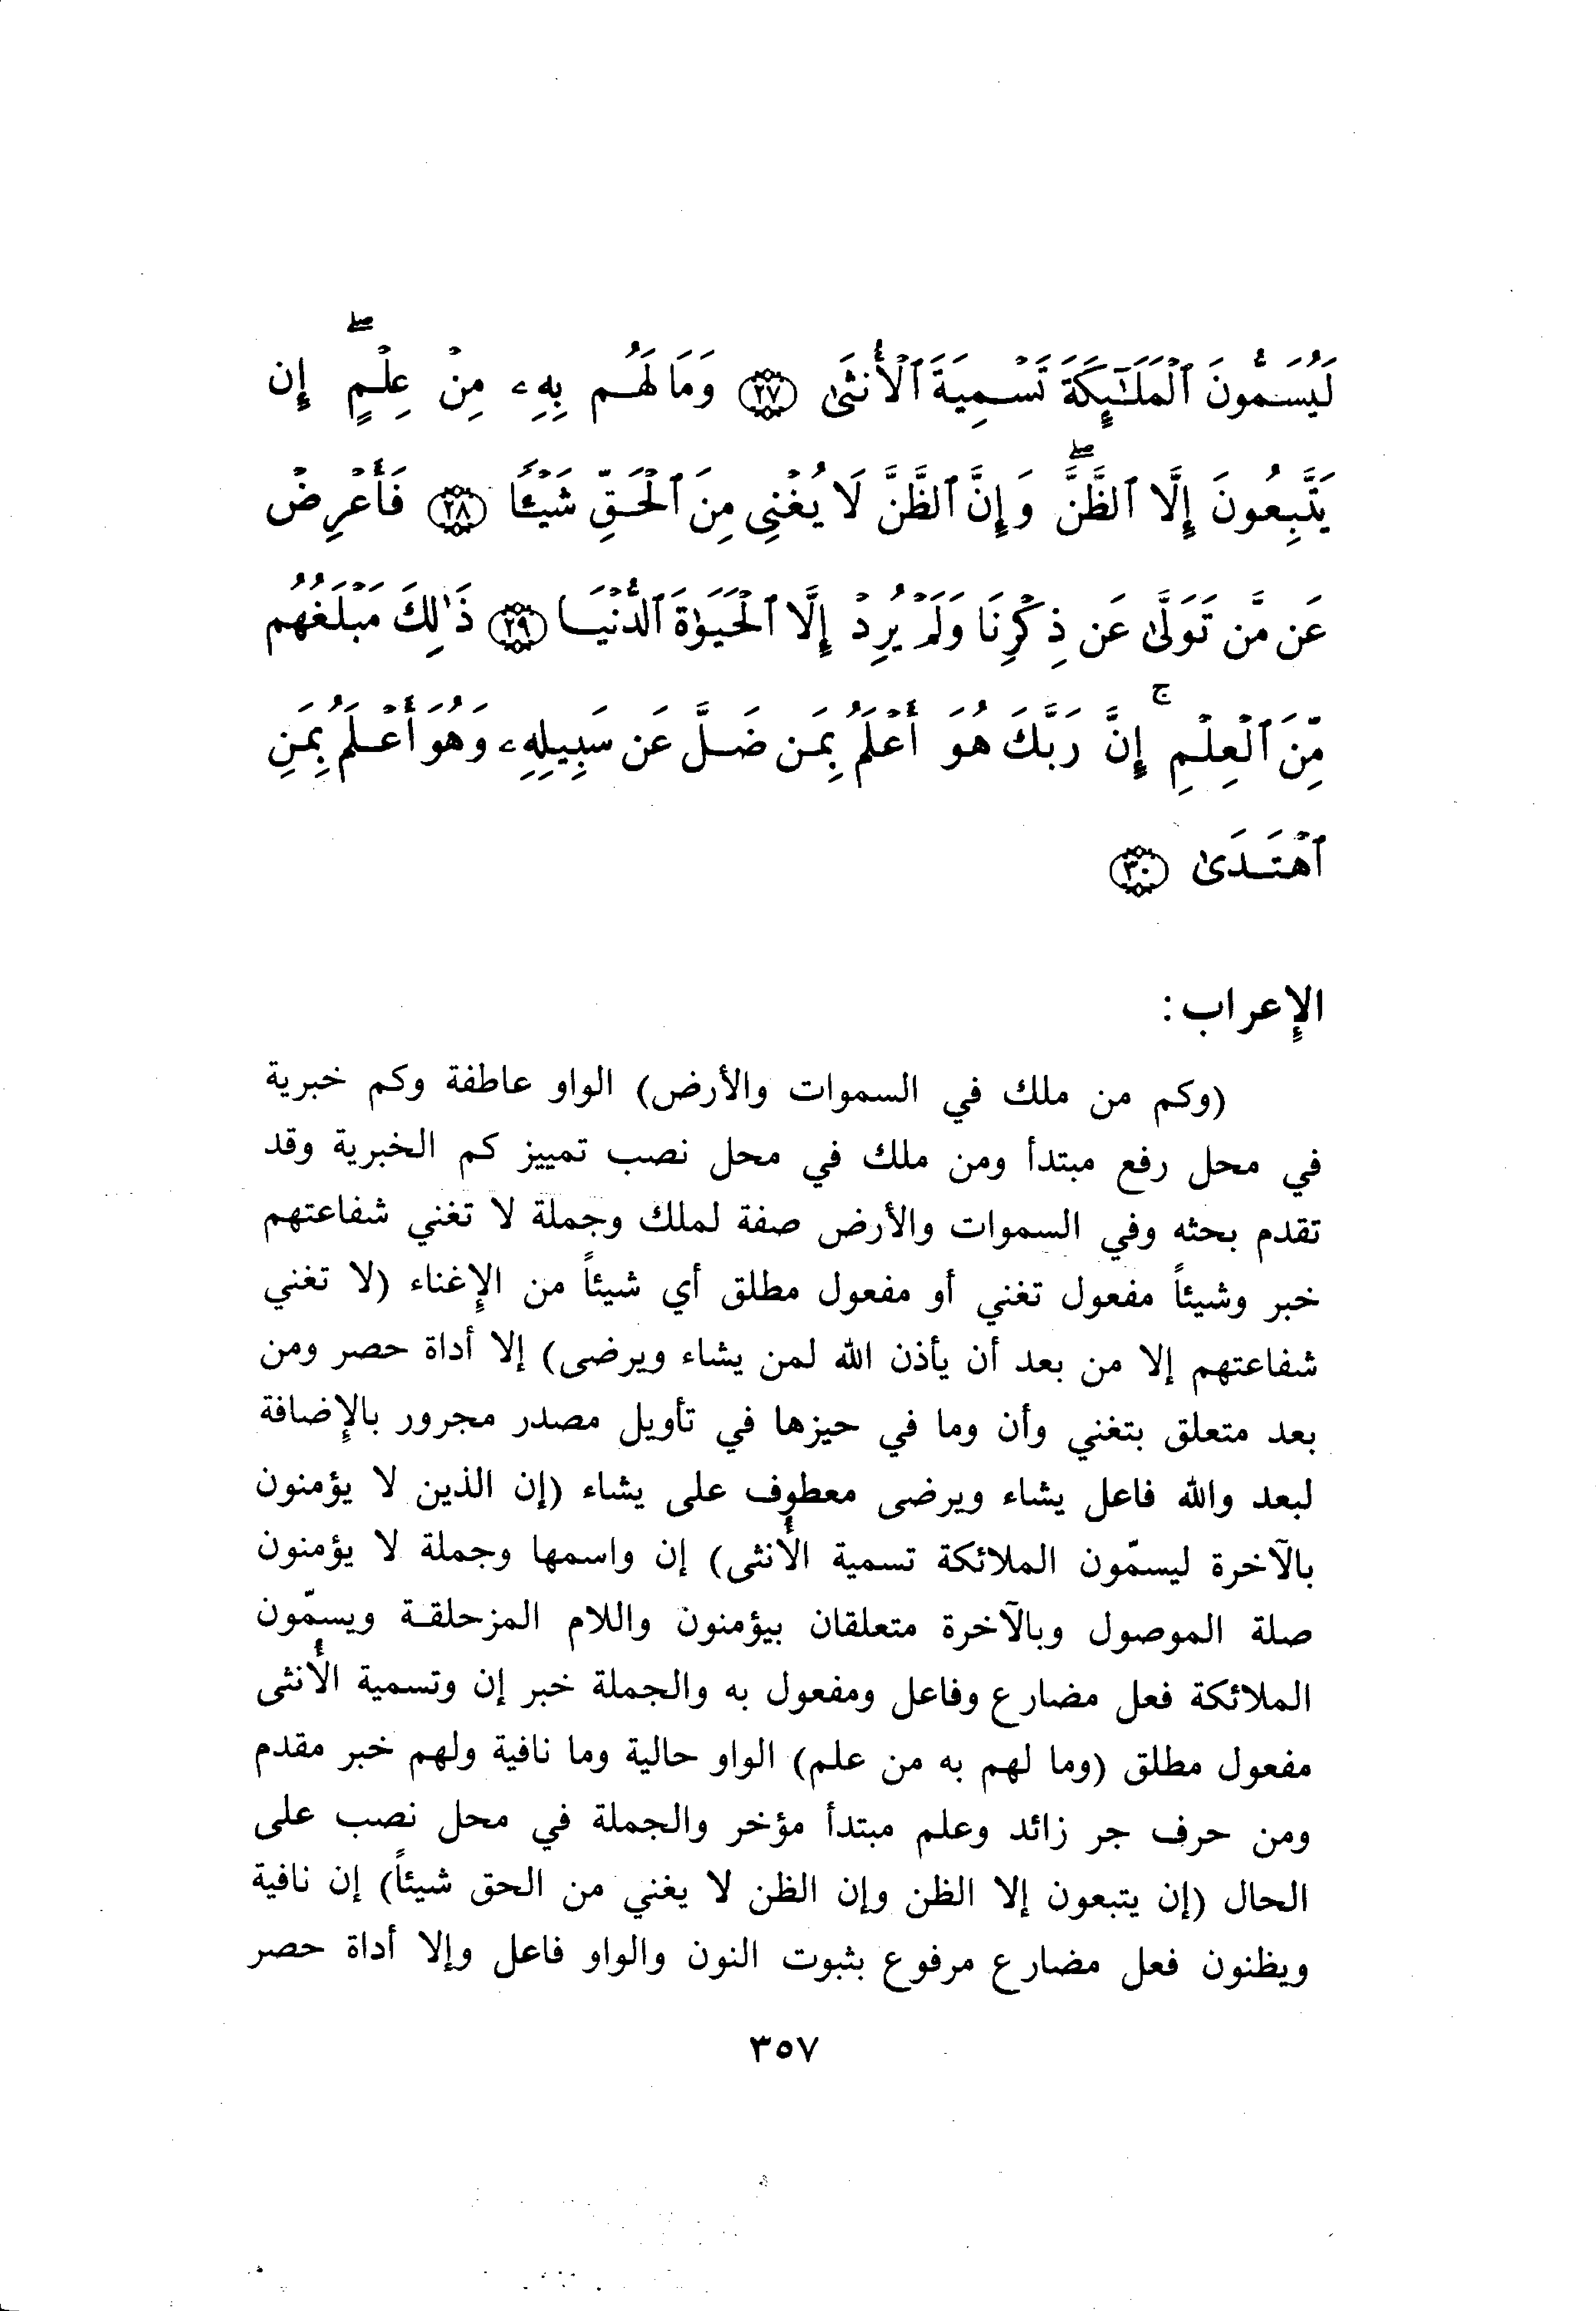 لَيُسَمُّونَ ٱلْمَلَـٰٓئِكَةَ تَسْمِيَةَ ٱلْأُنثَىٰ ﴿٢٧﴾ وَمَا لَهُم بِهِۦ مِنْ عِلْمٍ ۖ إِن
يَتَّبِعُونَ إِلَّا ٱلظَّنَّ ۖ وَإِنَّ ٱلظَّنَّ لَا يُغْنِى مِنَ ٱلْحَقِّ شَيْـًٔا ﴿٢٨﴾ فَأَعْرِضْ
عَن مَّن تَوَلَّىٰ عَن ذِكْرِنَا وَلَمْ يُرِدْ إِلَّا ٱلْحَيَوٰةَ ٱلدُّنْيَا ﴿٢٩﴾ ذَٰلِكَ مَبْلَغُهُم
مِّنَ ٱلْعِلْمِ ۚ إِنَّ رَبَّكَ هُوَ أَعْلَمُ بِمَن ضَلَّ عَن سَبِيلِهِۦ وَهُوَ أَعْلَمُ بِمَنِ
ٱهْتَدَىٰ ﴿٣٠﴾
الإعراب :
(وكم من ملك في السموات والأرض) الواو عاطفة وكم خبرية
في محل رفع مبتدأ ومن ملك في محل نصب تمييز كم الخبرية وقد
تقدم بحثه وفي السموات والأرض صفة لملك وجملة لا تغني شفاعتهم
خبر وشيئاً مفعول تغني أو مفعول مطلق أي شيئاً من الإغناء (لا تغني
شفاعتهم إلا من بعد أن يأذن الله لمن يشاء ويرضى) إلا أداة حصر ومن
بعد متعلق بتغني وأن وما في حيزها في تأويل مصدر مجرور بالإضافة
لبعد والله فاعل يشاء ويرضى معطوف على يشاء (إن الذين لا يؤمنون
بالآخرة ليسمّون الملائكة تسمية الأُنثى) إن واسمها وجملة لا يؤمنون
صلة الموصول وبالآخرة متعلقان بيؤمنون واللام المزحلقة ويسمّون
الملائكة فعل مضارع وفاعل ومفعول به والجملة خبر إن وتسمية الأُنثى
مفعول مطلق (وما لهم به من علم) الواو حالية وما نافية ولهم خبر مقدم
ومن حرف جر زائد وعلم مبتدأ مؤخر والجملة في محل نصب على
الحال (إن يتبعون إلا الظن وإن الظن لا يغني من الحق شيئاً) إن نافية
ويظنون فعل مضارع مرفوع بثبوت النون والواو فاعل وإلا أداة حصر
٣٥٧